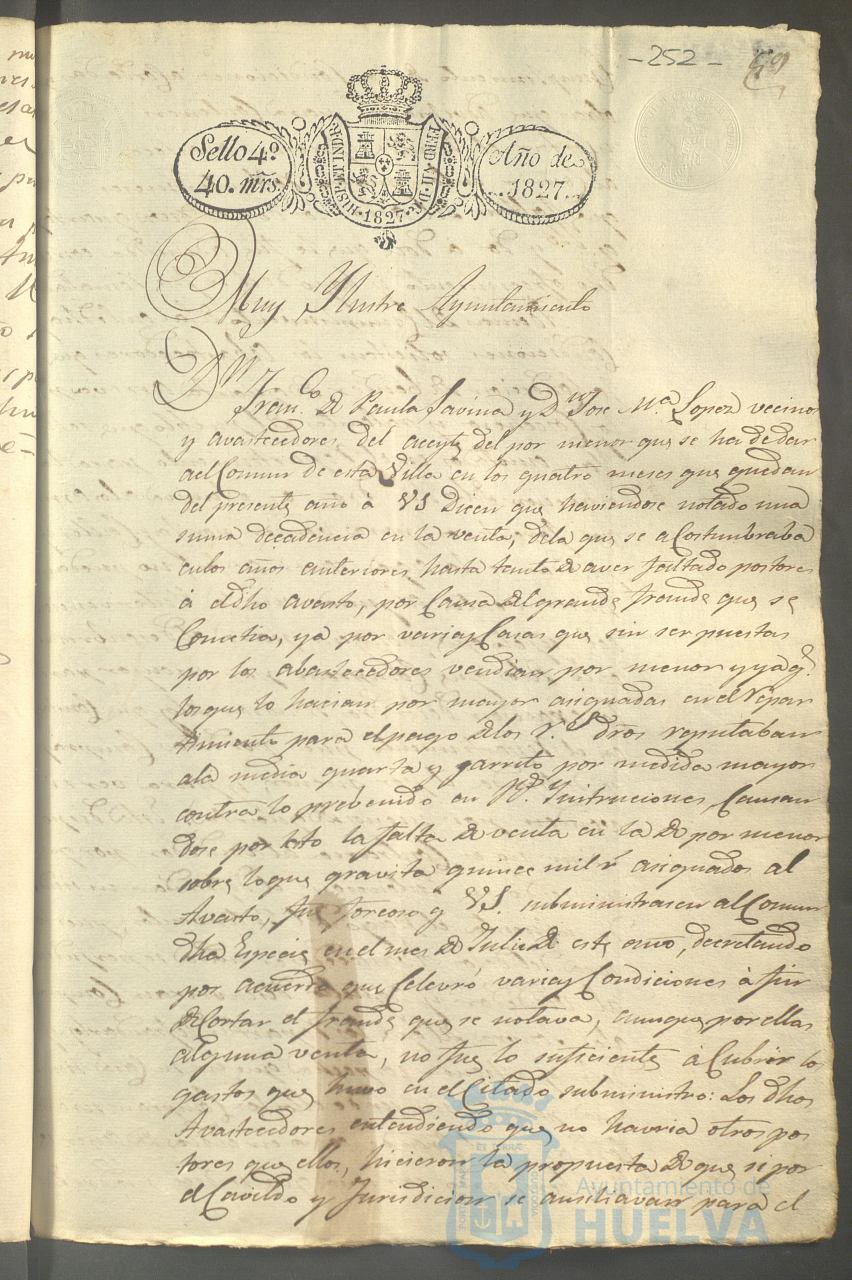 -252-
Sello 4º
40. mrs.
HISP. ET IND. R.
FERD. VII. D. G.
1827
Año de
1827.
Muy Ylustre Ayuntamiento
Dn
Franco. de Paula Savina y Dn Jose Ma. Lopez vecinos
y avastecedores del aceyte del por menor que se ha de dar
a el Comun de esta Villa en los quatro meses que quedan
del presente año à VS Dicen que haviendose notado una
suma decadencia en la venta, dela que se a Costumbraba
enlos años anteriores, hasta tanto de aver faltado postores
à el dho avasto, por Causa del grande fraude que se
Cometia, ya por varias Casas que sin ser puestas
por los abastecedores vendian por menor y ya q.
los que lo hacian por mayor asignadas en el repar
timiento para el pago de los rs. dros reputaban
ala media quarta y jarrito por medida mayor
contra lo prebenido en Rs. Ynstruciones, Causan
dose por esto la falta de venta en la de por menor
sobre loque gravita quince mil rs asignados al
Avasto, fue forcoso q VS. subministrasen al Comun
dha Especie en el mes de Julio de este año, decretando
por acuerdo que Celevró varias Condiciones à fin
de Cortar el fraude que se notava, aunque por ellas
alguna venta, no fue lo suficiente à Cubrir lo
gastos que huvo en el Citado subministro: Los dhos
Avastecedores entendiendo que no havria otros pos
tores que ellos, hicieron la propuesta de que si por
el Cavildo y Jurisdicion se ausiliavan para el
Ayuntamiento de
HUELVA